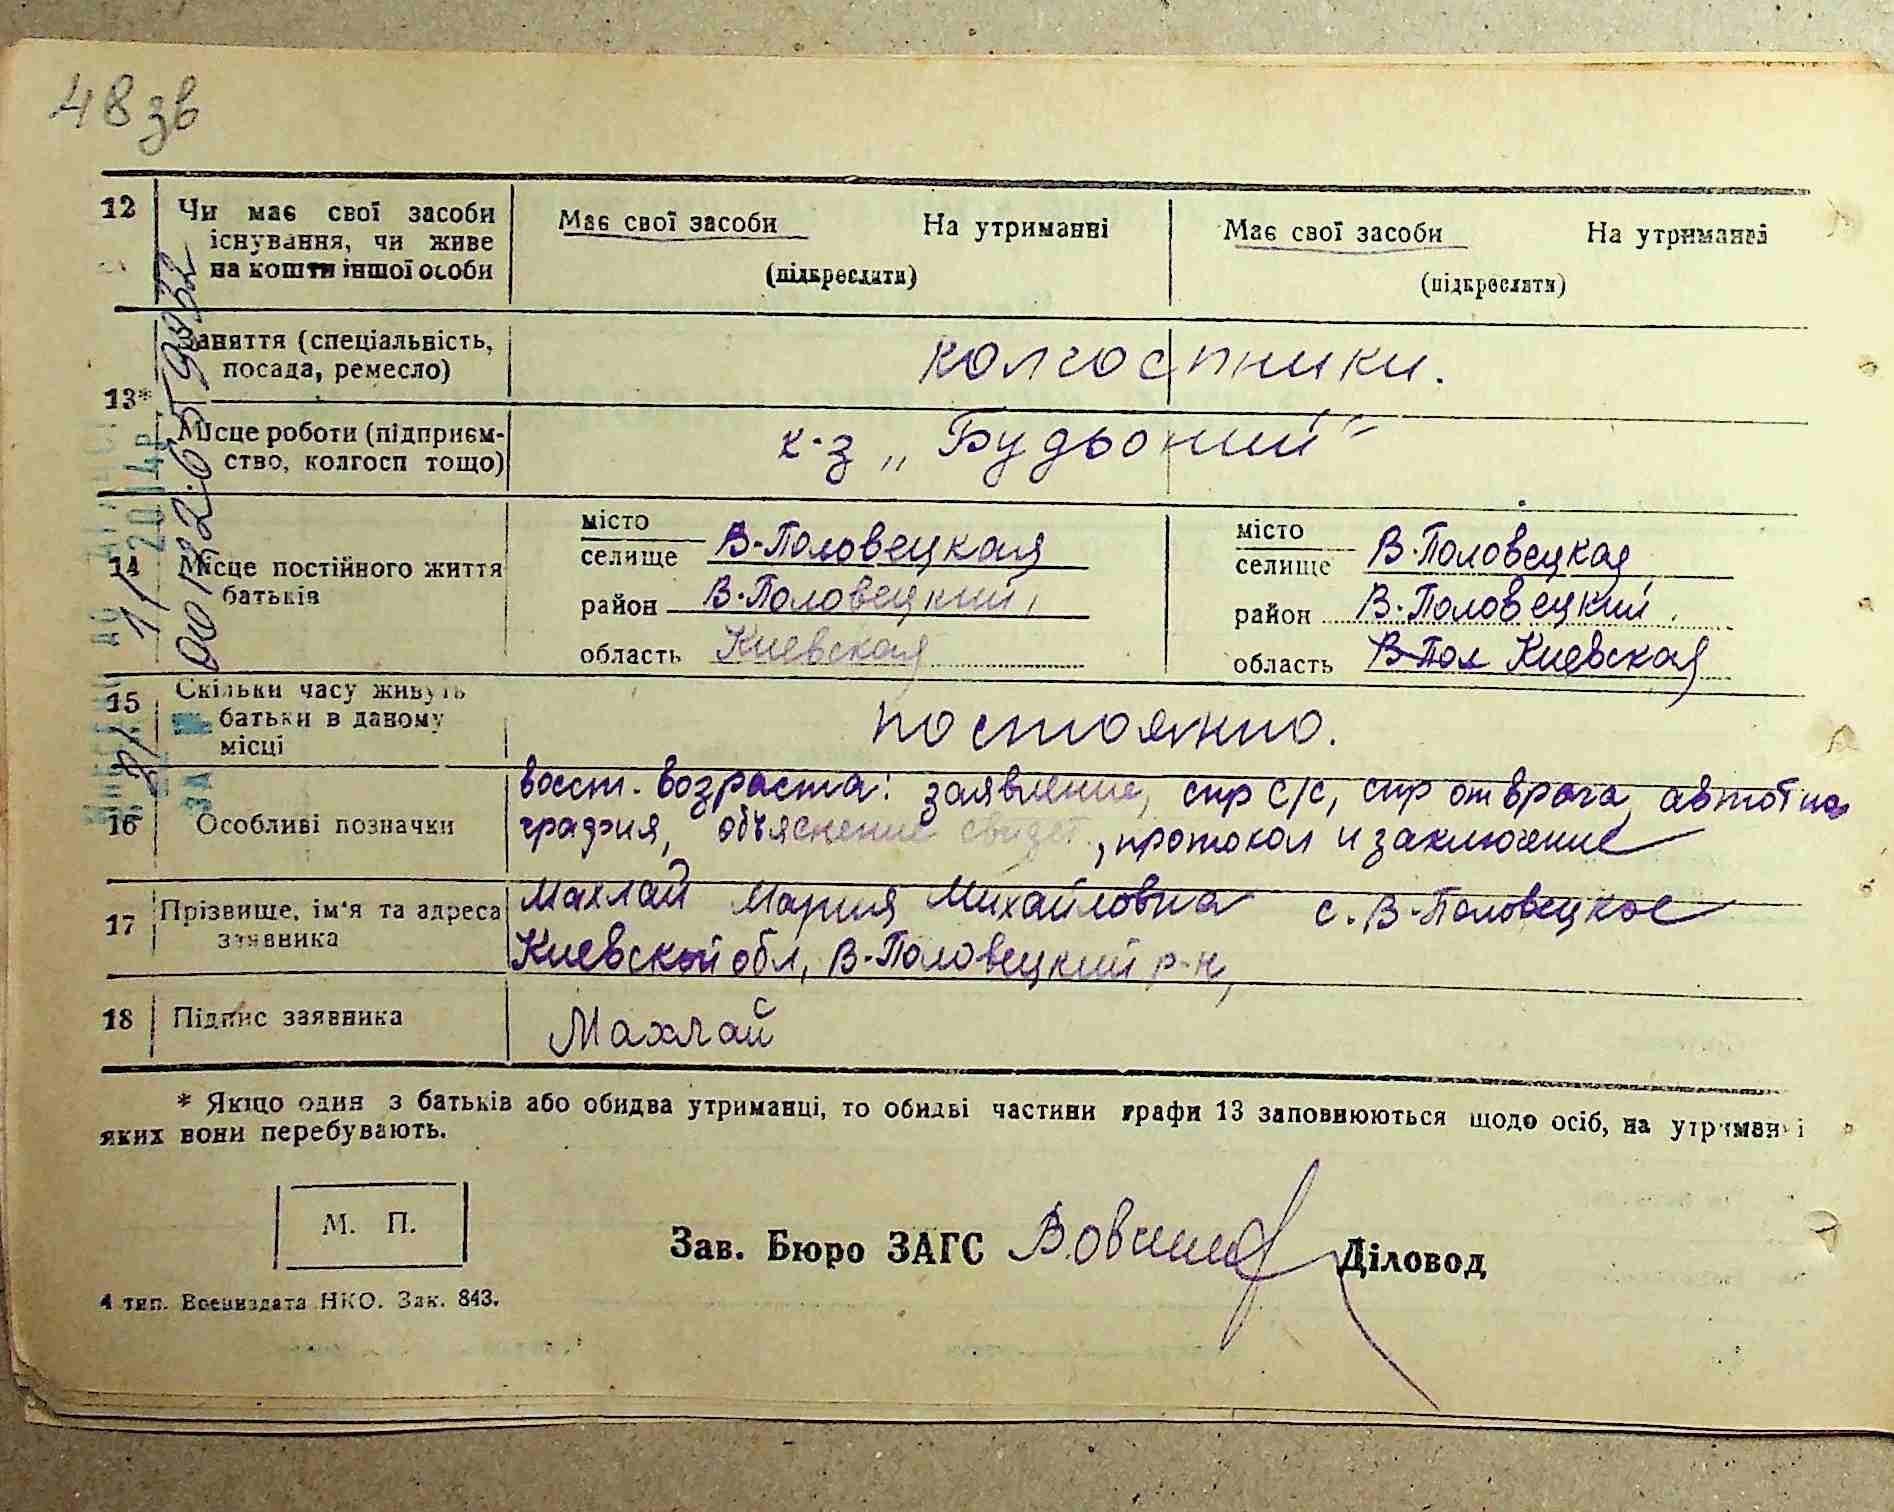 48 зв
12 Чи має свої засоби існування, чи живе на кошти іншої особи
Має свої засоби На утриманні
(підкреслити)
Має свої засоби На утриманні
(підкреслити)
13*
Заняття (спеціальність, посада, ремесло)
колгоспники.
Місце роботи (підприємство, колгосп тощо)
к-з „Будьоний"
14 Місце постійного життя батьків
місто
селище В-Половецкая
район В-Половецкий
область Киевская
місто
селище В-Половецкая
район В-Половецкий
область В-Пол Киевская
15 Скільки часу живуть батьки в даному місці
постоянно.
16 Особливі позначки
восст. возраста: заявление, спр с/с, спр от врача, автобио
графия, объяснение свидет., протокол и заключение
17 Прізвище, ім'я та адреса заявника
Махлай Мария Михайловна с. В-Половецкое
Киевской обл, В-Половецкий р-н,
18 Підпис заявника
Махлай
* Якщо один з батьків або обидва утриманці, то обидві частини графи 13 заповнюються щодо осіб, на утриманні
яких вони перебувають.
М. П.
Зав. Бюро ЗАГС Діловод
4 тип. Воениздата НКО. Зак. 843.